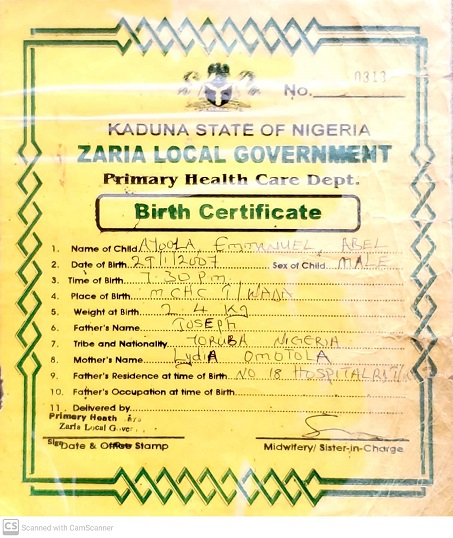 No. 0313
KADUNA STATE OF NIGERIA
ZARIA LOCAL GOVERNMENT
Primary Health Care Dept.
Birth Certificate
1. Name of Child AYOOLA, EMMANUEL, ABEL
2. Date of Birth 29/1/2007 Sex of Child MALE
3. Time of Birth 7:30 P.m.
4. Place of Birth MCHC
5. Weight at Birth 2.4 Kg
6. Father's Name JOSEPH
7. Tribe and Nationality YORUBA NIGERIA
8. Mother's Name Lydia OMOTOLA
9. Father's Residence at time of Birth NO 18 HOSPITAL
10. Father's Occupation at time of Birth
11. Delivered by
Primary Heath
Zaria Local
Date & Office Stamp Midwifery/ Sister-in-Charge
CS Scanned with CamScanner